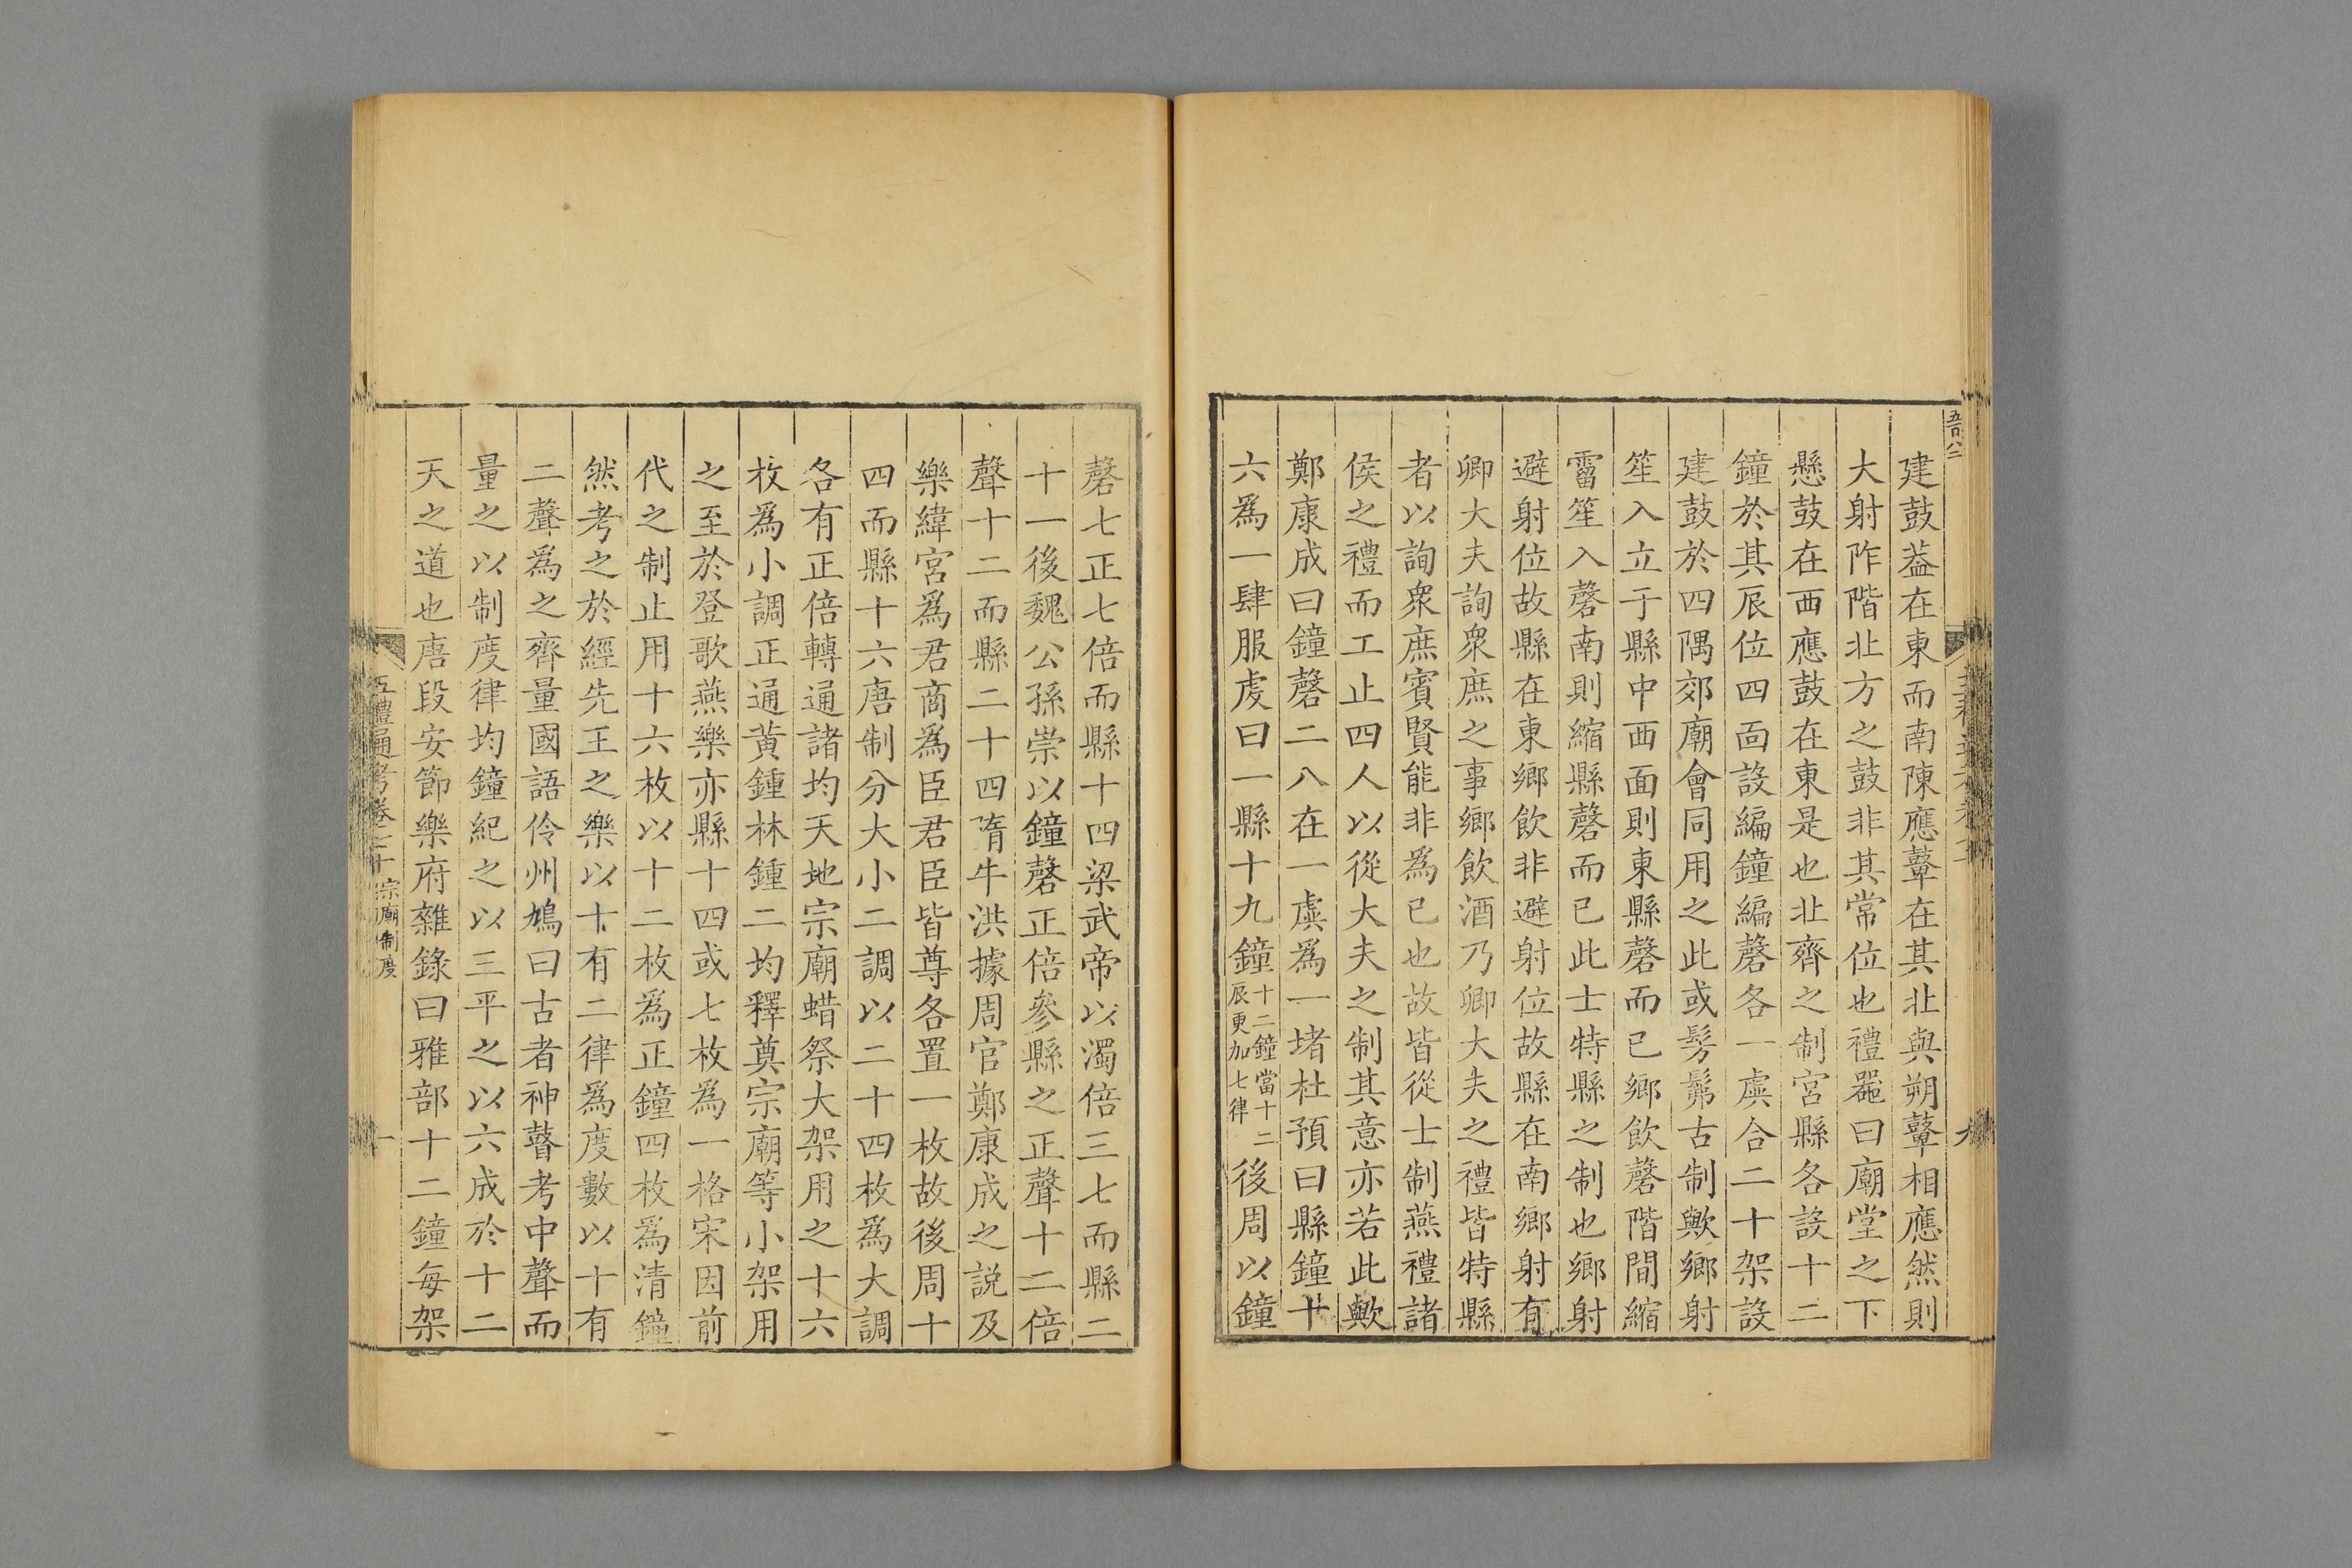 建鼓葢在東而南陳應鼙在其北與朔鼙相應然則
大射阼階北方之鼓非其常位也禮器曰廟堂之下
懸鼓在西應鼓在東是也北齊之制宮縣各設十二
鐘於其辰位四面設編鐘編磬各一虡合二十架設
建鼓於四隅郊廟會同用之此或髣髴古制歟鄉射
笙入立于縣中西面則東縣磬而已鄉飲磬階間縮
霤笙入磬南則縮縣磬而已此士特縣之制也鄉射
避射位故縣在東鄉飲非避射位故縣在南鄉射有
卿大夫詢衆庶之事鄉飲酒乃卿大夫之禮皆特縣
者以詢衆庶賓賢能非為己也故皆從士制燕禮諸
侯之禮而工止四人以從大夫之制其意亦若此歟
鄭康成曰鐘磬二八在一虡為一堵杜預曰縣鐘十
六為一肆服虔曰一縣十九鐘十二鐘當十二辰更加七律後周以鐘
磬七正七倍而縣十四梁武帝以濁倍三七而縣二
十一後魏公孫崇以鐘磬正倍參縣之正聲十二倍
聲十二而縣二十四隋牛洪據周官鄭康成之説及
樂緯宮為君商為臣君臣皆尊各置一枚故後周十
四而縣十六唐制分大小二調以二十四枚為大調
各有正倍轉通諸均天地宗廟蜡祭大架用之十六
枚為小調正通黃鍾林鍾二均釋奠宗廟等小架用
之至於登歌燕樂亦縣十四或七枚為一格宋因前
代之制止用十六枚以十二枚為正鐘四枚為清鐘
然考之於經先王之樂以十有二律為度數以十有
二聲為之齊量國語伶州鳩曰古者神瞽考中聲而
量之以制度律均鐘紀之以三平之以六成於十二
天之道也唐段安節樂府雜錄曰雅部十二鐘每架
五禮通考卷七十 宗廟制度 十